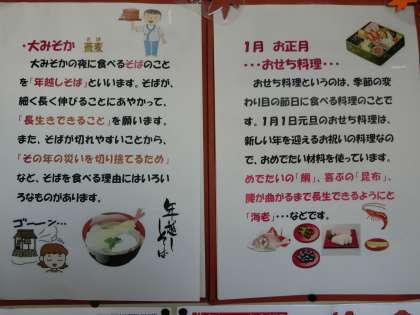 ・大みそか 蕎麦
そば
大みそかの夜に食べるそばのこと
を「年越しそば」といいます。そばが、
細く長く伸びることにあやかって、
「長生きできること」を願います。
また、そばが切れやすいことから、
「その年の災いを切り捨てるため」
など、そばを食べる理由にはいろい
ろなものがあります。
ゴ〜ン…
年越しそば
1月 お正月
・・・おせち料理・・・
おせち料理というのは、季節の変
わり目の節日に食べる料理のことで
す。1月1日元旦のおせち料理は、
新しい年を迎えるお祝いの料理なの
で、おめでたい材料を使っています。
めでたいの「鯛」、喜ぶの「昆布」、
腰が曲がるまで長生できるようにと
「海老」・・・などです。